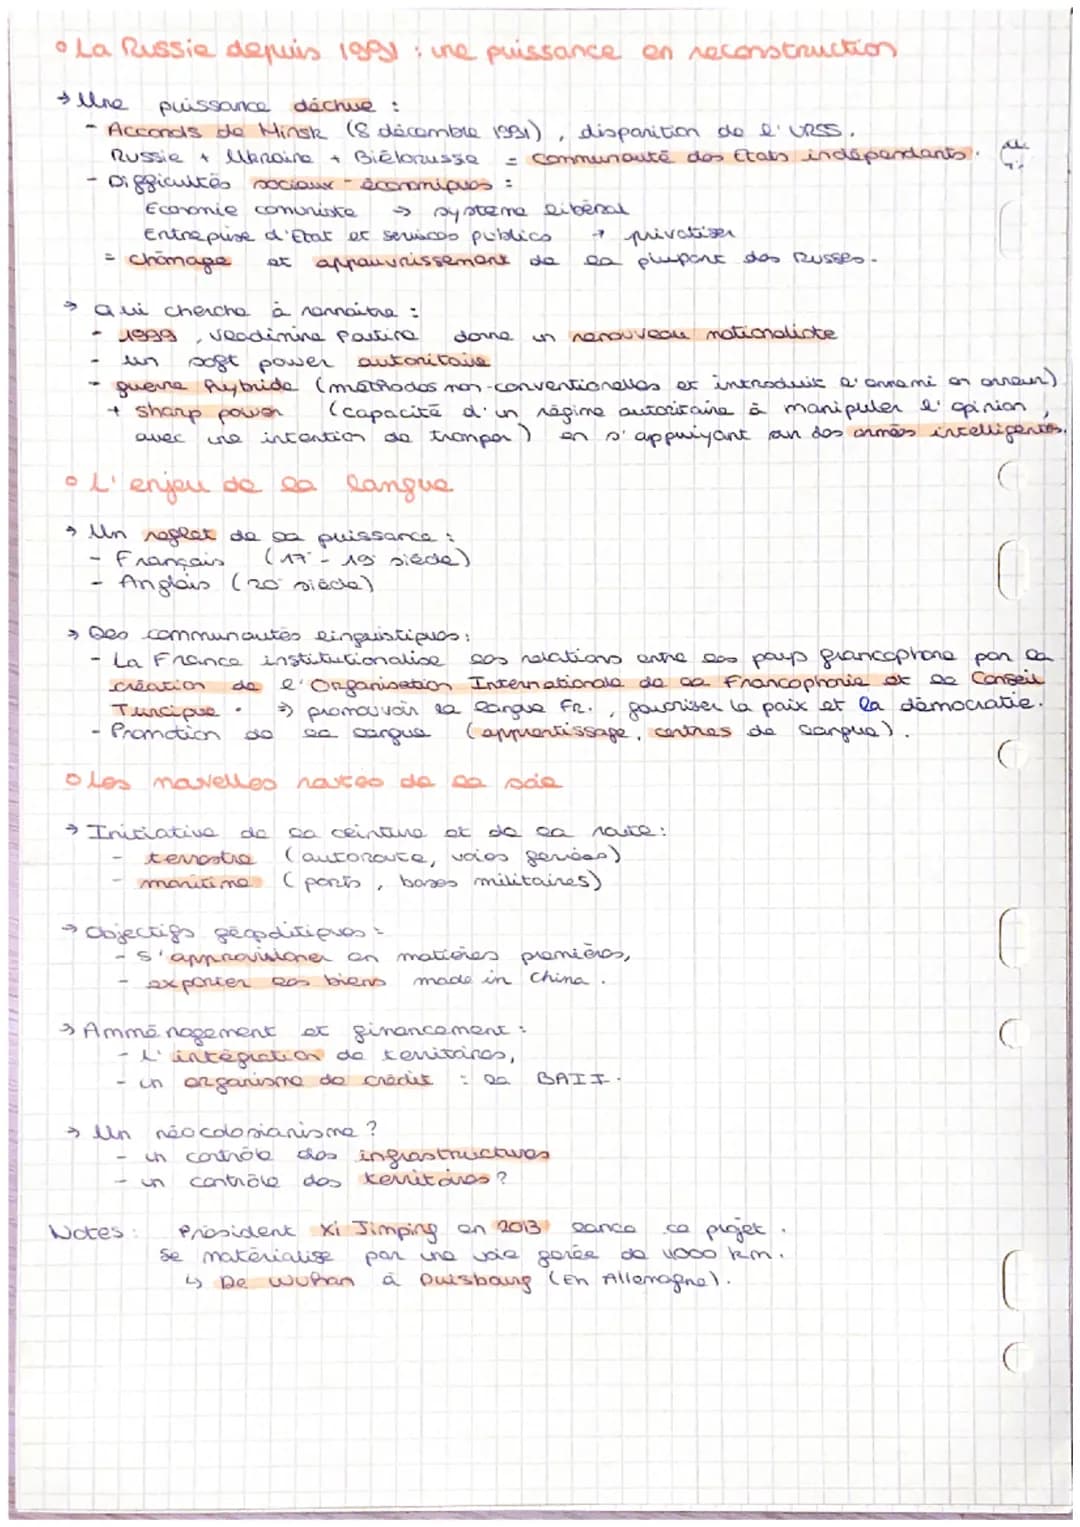 La Russie depuis 1991 : une puissance en reconstruction
→ Une puissance déchue :
- Accords de Minsk (8 décembre 1991), disparition de l'URSS.
Russie + Ukraine + Biélorusse = Communauté des Etats indépendants.
- Difficultés sociaux-économiques :
Economie comuniste → système libéral
Entreprise d'Etat et services publics → privatiser
= chômage et appauvrissement de la plupart des Russes.
→ Qui cherche à rennaitre :
- 1999, Vladimire Poutine donne un renouveau nationaliste
- un soft power autoritaire
- guerre hybride (méthodes non-conventionelles et introduit l'ennemi en erreur)
+ sharp power (capacité d'un régime autoritaire à manipuler l'opinion,
avec une intention de tromper) en s'appuyant sur des armées intelligentes.
L'enjeu de la langue
→ Un reflet de sa puissance :
- Français (17 - 19 siècle)
- Anglais (20 siècle)
→ Des communautés linguistiques :
- La France institutionalise ses relations entre les pays francophone par la
création de l'Organisation Internationale de la Francophonie et le Conseil
Turcique. ⇒ promouvoir la langue Fr., favoriser la paix et la démocratie.
- Promotion de la langue (apprentissage, centres de langue).
Les nouvelles routes de la soie
→ Initiative de la ceinture et de la route :
- terrestre (autoroute, voies ferrées)
- maritime (ports, bases militaires)
→ Objectifs géopolitiques :
- s'approvisioner en matières premières,
- exporter les biens made in China.
→ Amménagement et financement :
- L'intégration de territoires,
- un organisme de crédit : la BAII.
→ Un néocolonianisme ?
- un contrôle des infrastructures
- un contrôle des territoires ?
Notes : Président Xi Jimping en 2013 lance ce projet.
Se matérialise par une voie ferée de 11000 km.
↳ De Wuhan à Duisbourg (En Allemagne).